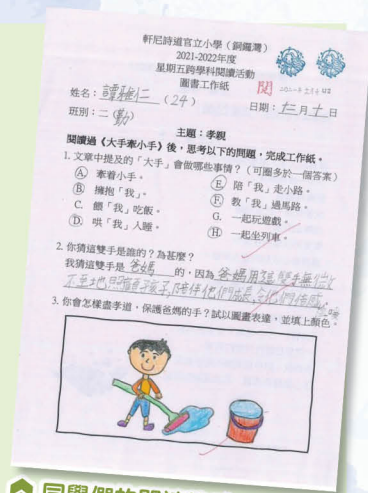 軒尼詩道官立小學（銅鑼灣）
2021-2022年度
星期五跨學科閱讀活動
圖書工作紙
閱
姓名：譚駿仁（24）
日期：十二月十日
班別：二（勤）
主題：孝親
閱讀過《大手牽小手》後，思考以下的問題，完成工作紙。
1. 文章中提及的「大手」會做哪些事情？（可圈多於一個答案）
A. 牽着小手。 E. 陪「我」走小路。
B. 擁抱「我」。 F. 教「我」過馬路。
C. 餵「我」吃飯。 G. 一起玩遊戲。
D. 哄「我」入睡。 H. 一起坐列車。
2. 你猜這雙手是誰的？為甚麼？
我猜這雙手是 爸媽 的，因為 爸媽用這雙手無微
不至地照顧孩子陪伴他們成長，令他們倍感
溫暖。
3. 你會怎樣盡孝道，保護爸媽的手？試以圖畫表達，並填上顏色。